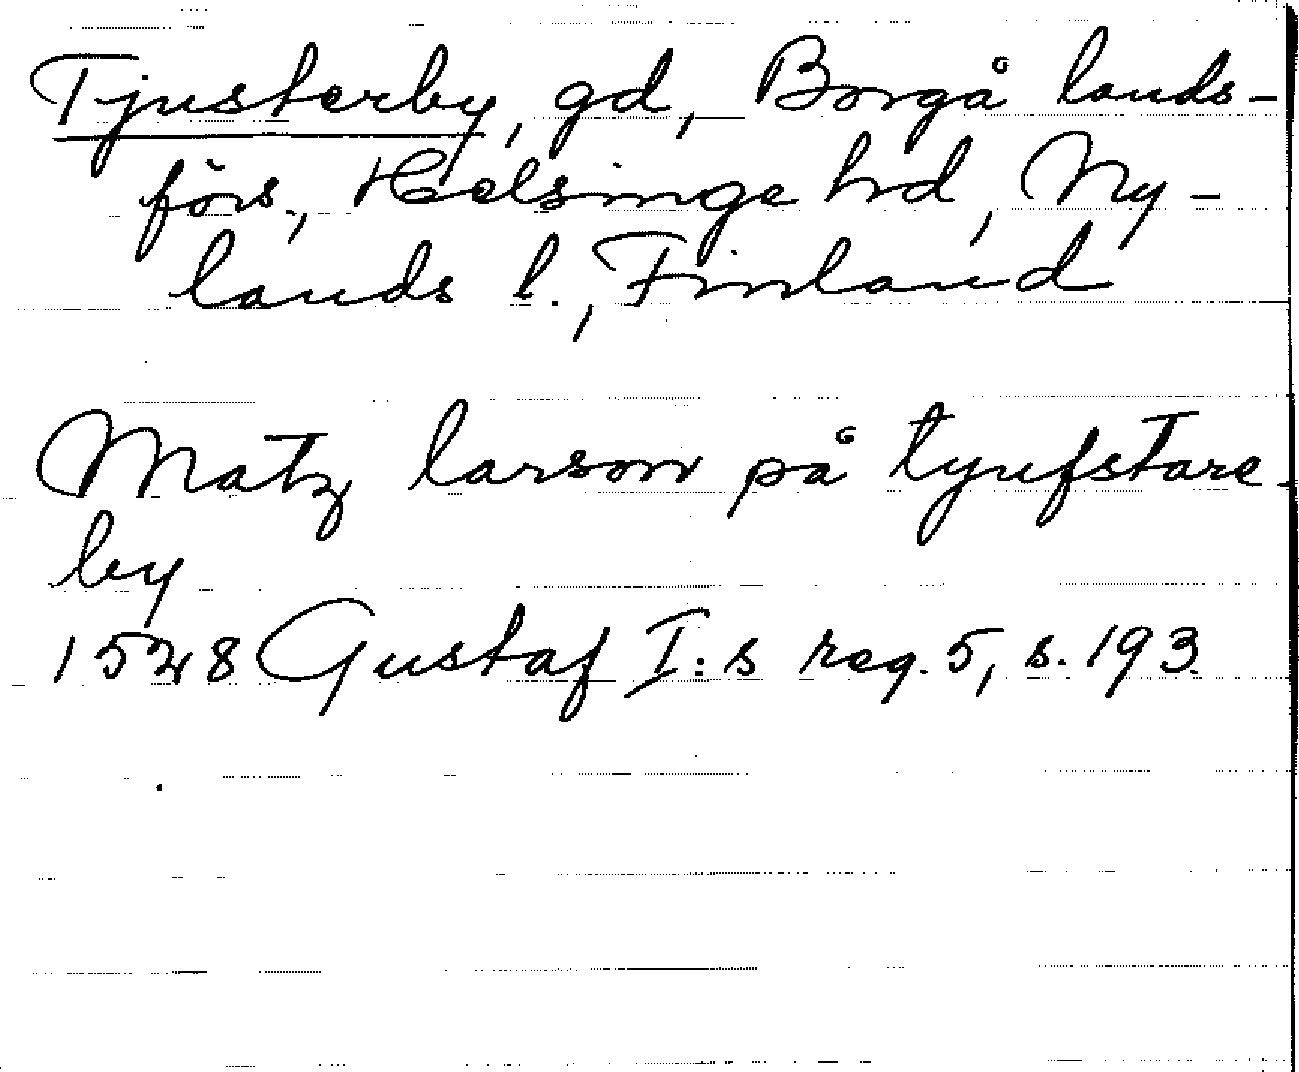 Tjusterby, gd, Borgå lands-
förs., Helsinge hrd, Ny-
lands l., Finland
Matz larson på tyrfstare
by
1528 Gustaf I:s reg. 5, s. 193